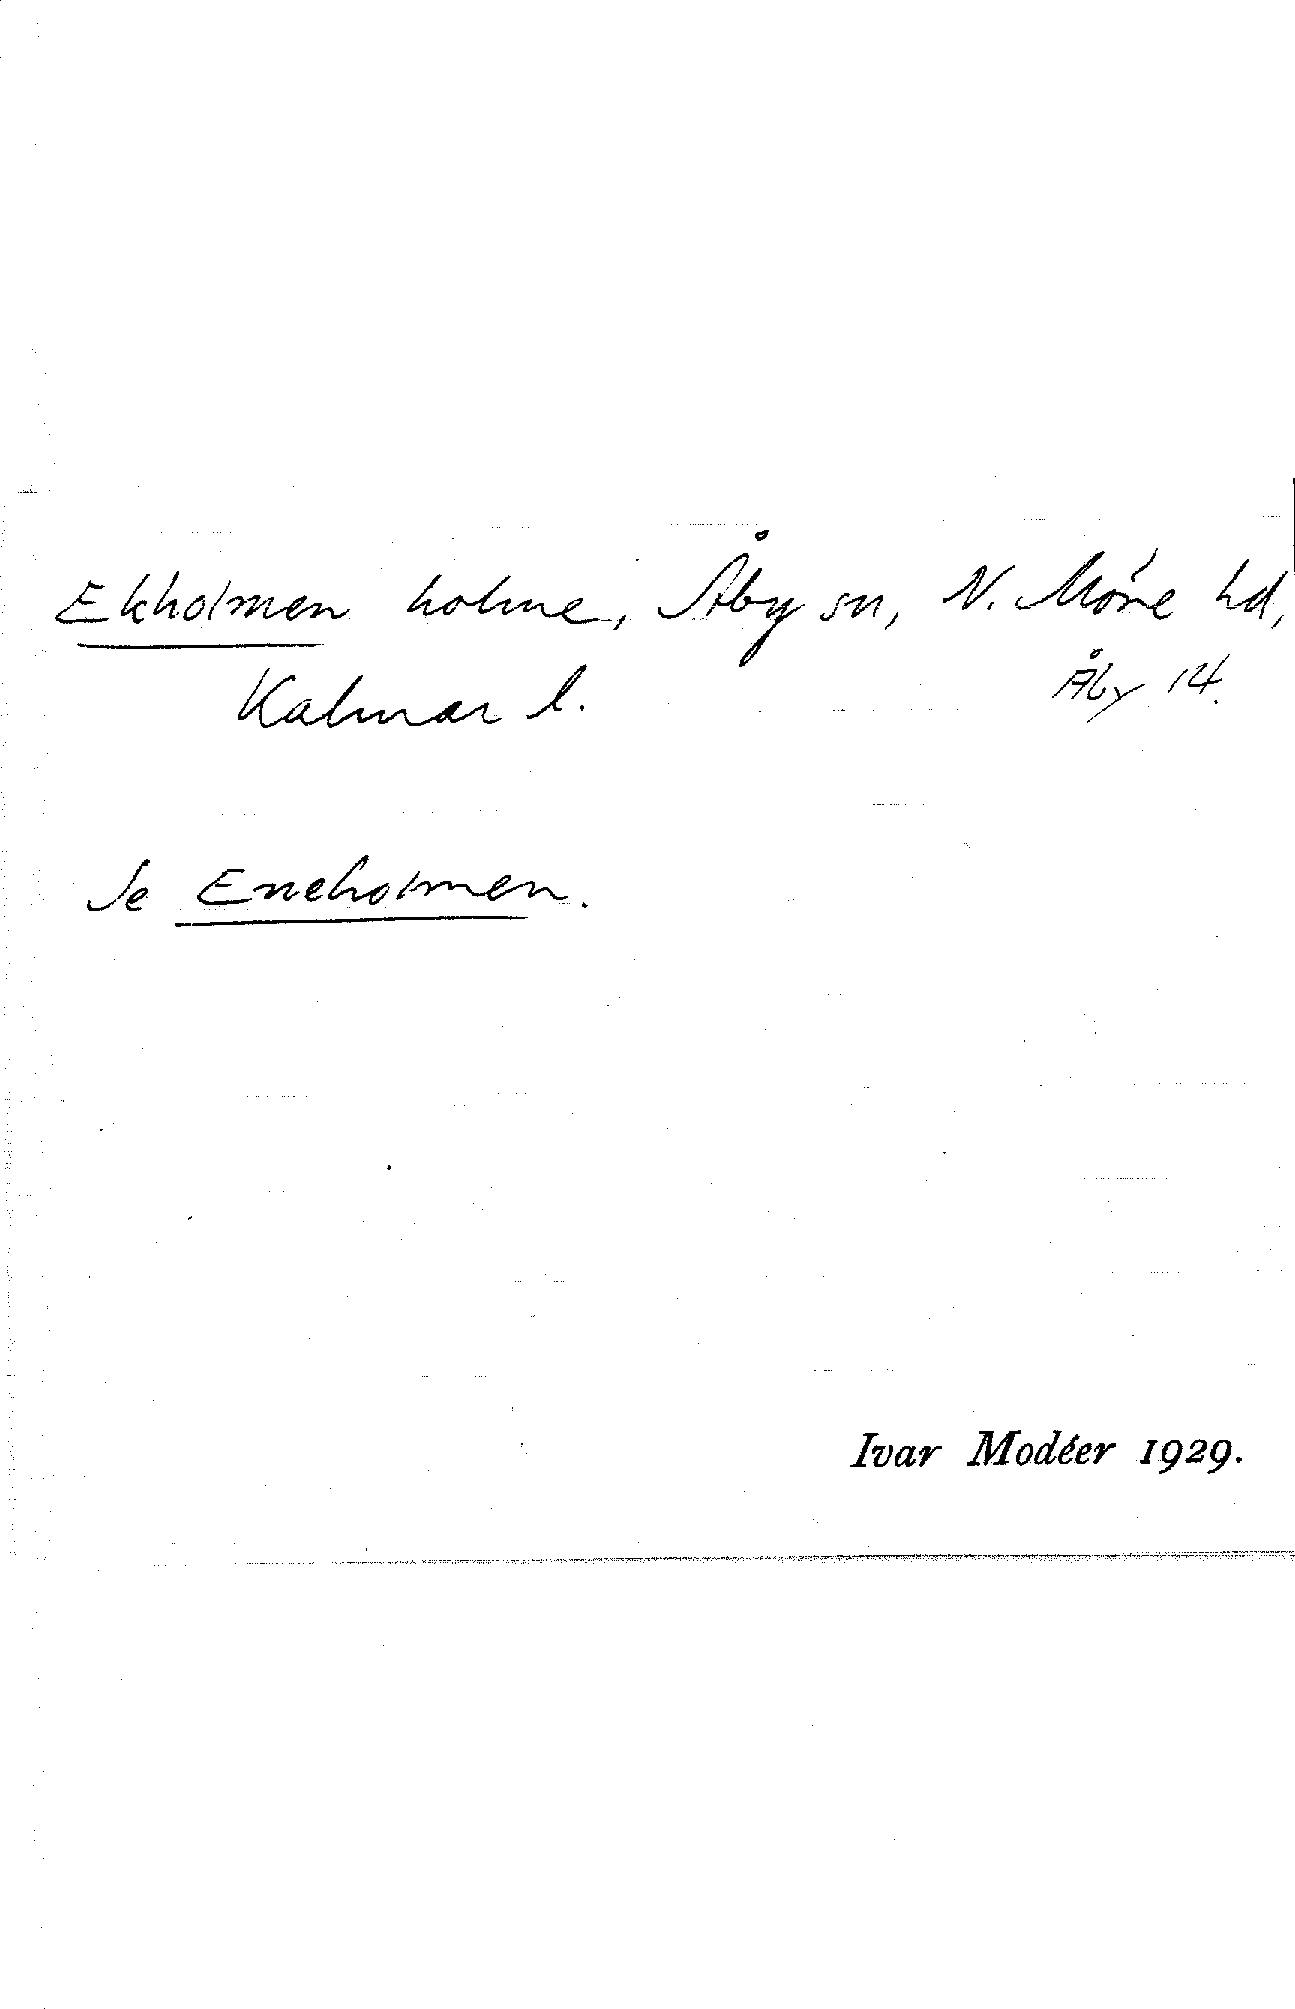 Ekholmen holme, Åby sn, N. Möre hd,
Kalmar l.
Åby 14.
Se Eneholmen.
Ivar Modéer 1929.